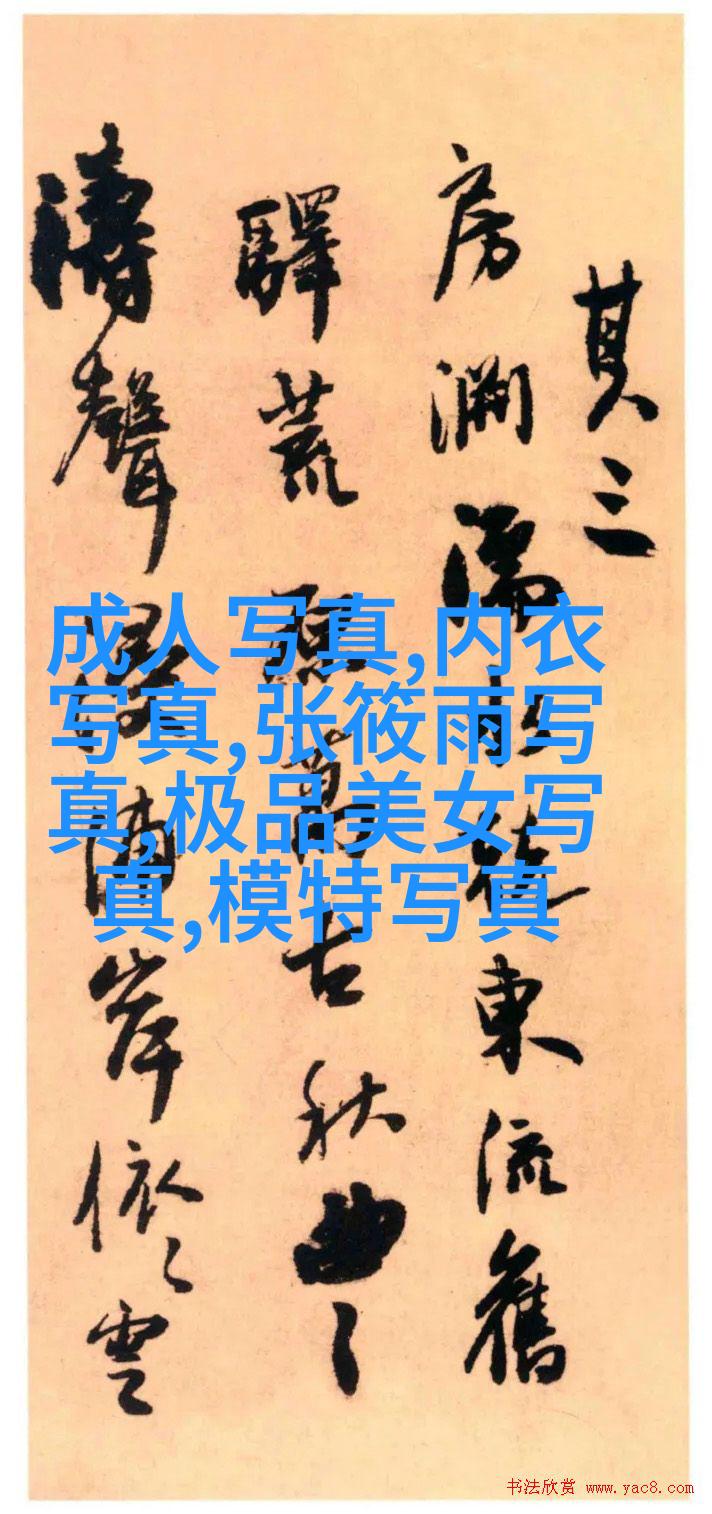 其三
房淵隔
東流舊
驛荒聽萬古秋曲〻
濤聲浸浦岸依〻雲
成人写真,内衣
写真,张筱雨写
真,极品美女写
真,模特写真
书法欣赏 www.yac8.com